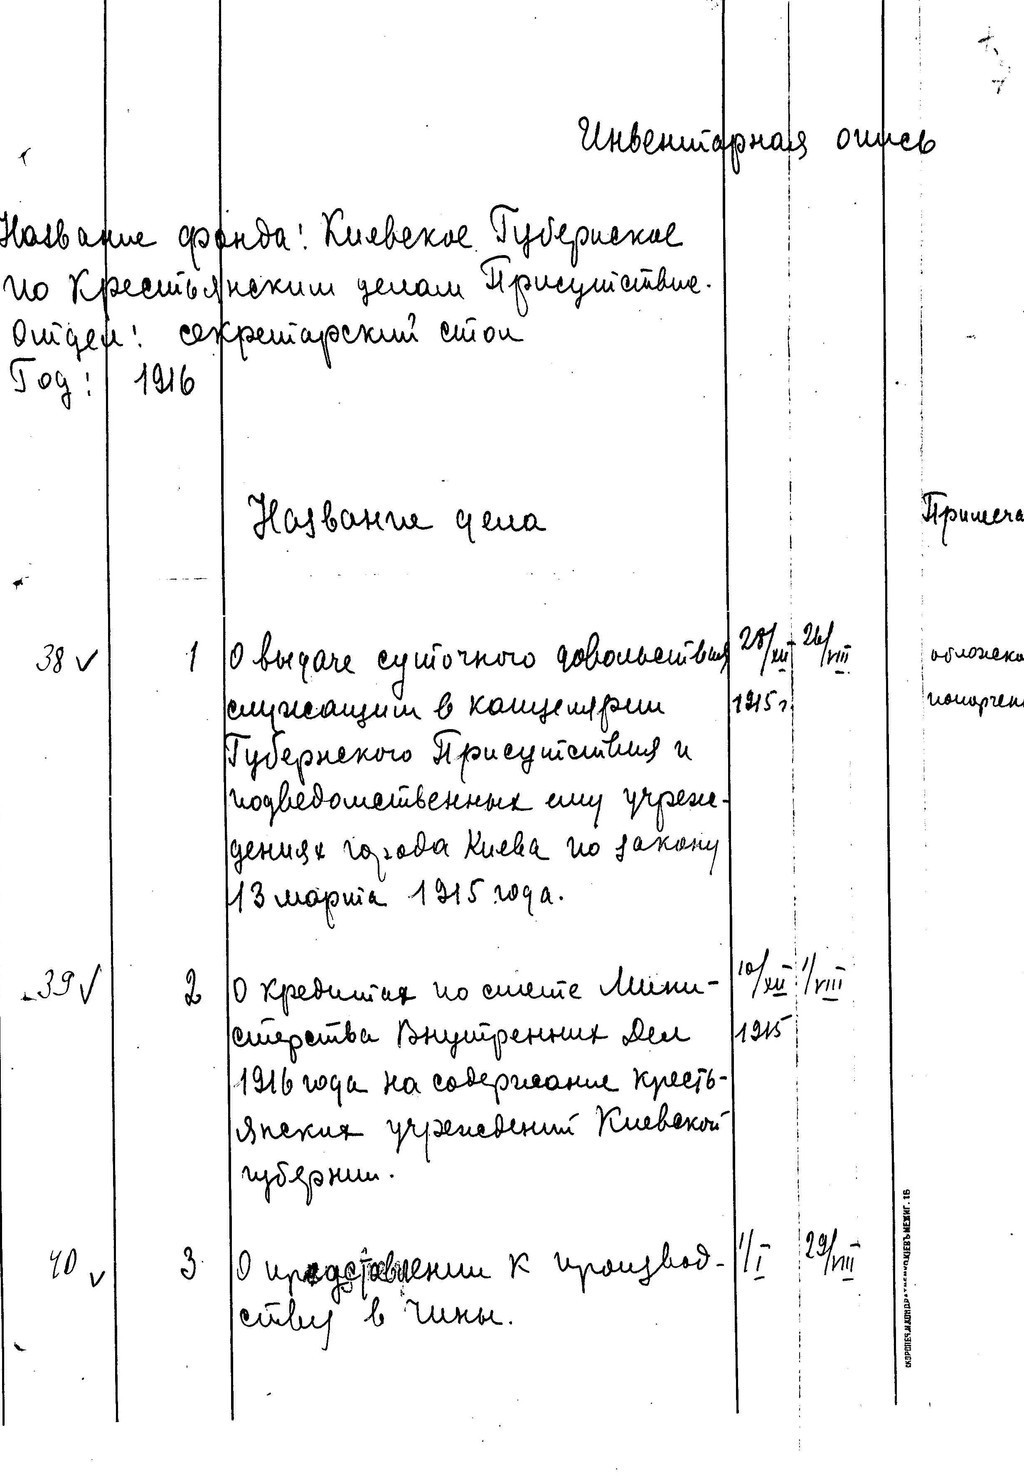 Инвентарная опись
Название фонда: Киевское Губернское
по Крестьянским делам Присутствие.
Отдел: секретарский стол
Год: 1916
Название дела
Примеча
38 ✓ 1 О выдаче суточного довольствия 28/XII 26/VIII обложка
служащим в канцелярии 1915 г. попорчен
Губернского Присутствия и
подведомственных ему учреж-
дениях города Киева по закону
13 марта 1915 года.
39 ✓ 2 О кредитах по смете Мини- 10/XII 1/VIII
стерства Внутренних Дел 1915
1916 года на содержание кресть-
янских учреждений Киевской
губернии.
40 ✓ 3 О представлении к производ- 1/I 29/VIII
ству в чины.